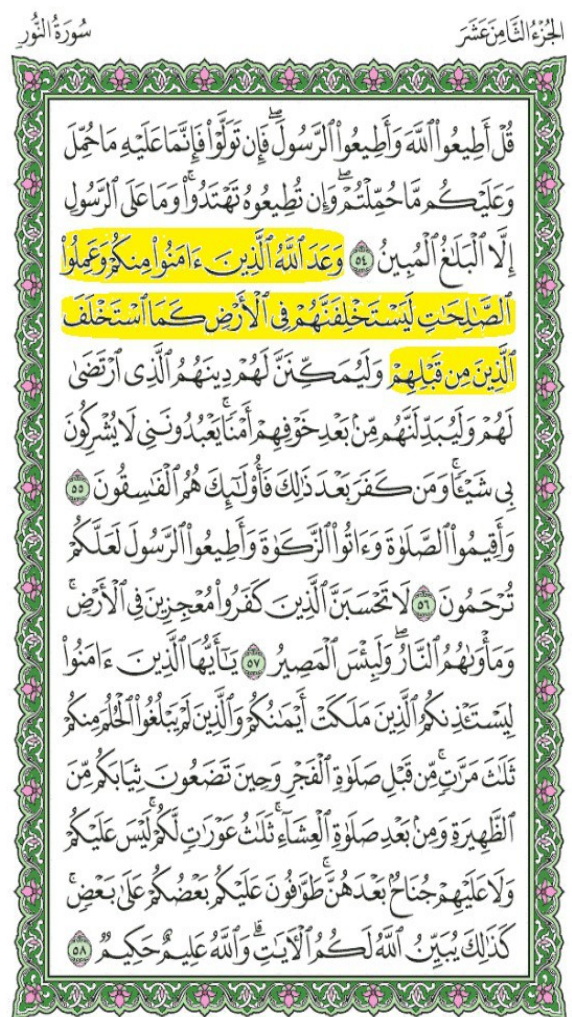 الجزء الثامن عشر
سورة النور
قُلْ أَطِيعُوا۟ ٱللَّهَ وَأَطِيعُوا۟ ٱلرَّسُولَ ۖ فَإِن تَوَلَّوْا۟ فَإِنَّمَا عَلَيْهِ مَا حُمِّلَ
وَعَلَيْكُم مَّا حُمِّلْتُمْ ۖ وَإِن تُطِيعُوهُ تَهْتَدُوا۟ ۚ وَمَا عَلَى ٱلرَّسُولِ
إِلَّا ٱلْبَلَٰغُ ٱلْمُبِينُ ٥٤ وَعَدَ ٱللَّهُ ٱلَّذِينَ ءَامَنُوا۟ مِنكُمْ وَعَمِلُوا۟
ٱلصَّٰلِحَٰتِ لَيَسْتَخْلِفَنَّهُمْ فِى ٱلْأَرْضِ كَمَا ٱسْتَخْلَفَ
ٱلَّذِينَ مِن قَبْلِهِمْ وَلَيُمَكِّنَنَّ لَهُمْ دِينَهُمُ ٱلَّذِى ٱرْتَضَىٰ
لَهُمْ وَلَيُبَدِّلَنَّهُم مِّنۢ بَعْدِ خَوْفِهِمْ أَمْنًا ۚ يَعْبُدُونَنِى لَا يُشْرِكُونَ
بِى شَيْـًٔا ۚ وَمَن كَفَرَ بَعْدَ ذَٰلِكَ فَأُو۟لَٰٓئِكَ هُمُ ٱلْفَٰسِقُونَ ٥٥
وَأَقِيمُوا۟ ٱلصَّلَوٰةَ وَءَاتُوا۟ ٱلزَّكَوٰةَ وَأَطِيعُوا۟ ٱلرَّسُولَ لَعَلَّكُمْ
تُرْحَمُونَ ٥٦ لَا تَحْسَبَنَّ ٱلَّذِينَ كَفَرُوا۟ مُعْجِزِينَ فِى ٱلْأَرْضِ ۚ
وَمَأْوَىٰهُمُ ٱلنَّارُ ۖ وَلَبِئْسَ ٱلْمَصِيرُ ٥٧ يَٰٓأَيُّهَا ٱلَّذِينَ ءَامَنُوا۟
لِيَسْتَـْٔذِنكُمُ ٱلَّذِينَ مَلَكَتْ أَيْمَٰنُكُمْ وَٱلَّذِينَ لَمْ يَبْلُغُوا۟ ٱلْحُلُمَ مِنكُمْ
ثَلَٰثَ مَرَّٰتٍ ۚ مِّن قَبْلِ صَلَوٰةِ ٱلْفَجْرِ وَحِينَ تَضَعُونَ ثِيَابَكُم مِّنَ
ٱلظَّهِيرَةِ وَمِنۢ بَعْدِ صَلَوٰةِ ٱلْعِشَآءِ ۚ ثَلَٰثُ عَوْرَٰتٍ لَّكُمْ ۚ لَيْسَ عَلَيْكُمْ
وَلَا عَلَيْهِمْ جُنَاحٌۢ بَعْدَهُنَّ ۚ طَوَّٰفُونَ عَلَيْكُم بَعْضُكُمْ عَلَىٰ بَعْضٍ ۚ
كَذَٰلِكَ يُبَيِّنُ ٱللَّهُ لَكُمُ ٱلْءَايَٰتِ ۗ وَٱللَّهُ عَلِيمٌ حَكِيمٌ ٥٨